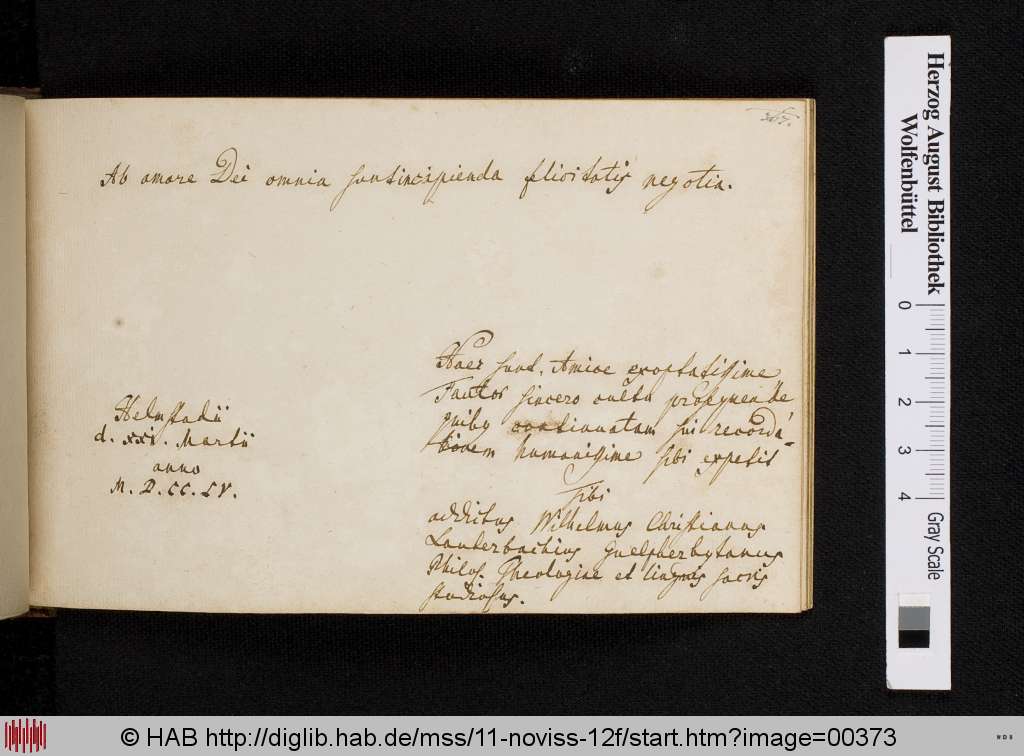 367.
Ab amore Dei omnia sunt incipienda felicitatis negotia.
Haec sunt, Amice exoptatissime
Fautor sincero cultu
quibus continuatam sui recorda-
tionem humanissime sibi expetit
Helmstadii
d. XXI. Martii
anno
M. D. CC. LV.
Tibi
addictus Wilhelmus Christianus
Lauterbachius Guelpherbytanus
Philos. Theologiae et linguis sacris
studiosus.
Herzog August Bibliothek
Wolfenbüttel
0 1 2 3 4
Gray Scale
© HAB http://diglib.hab.de/mss/11-noviss-12f/start.htm?image=00373